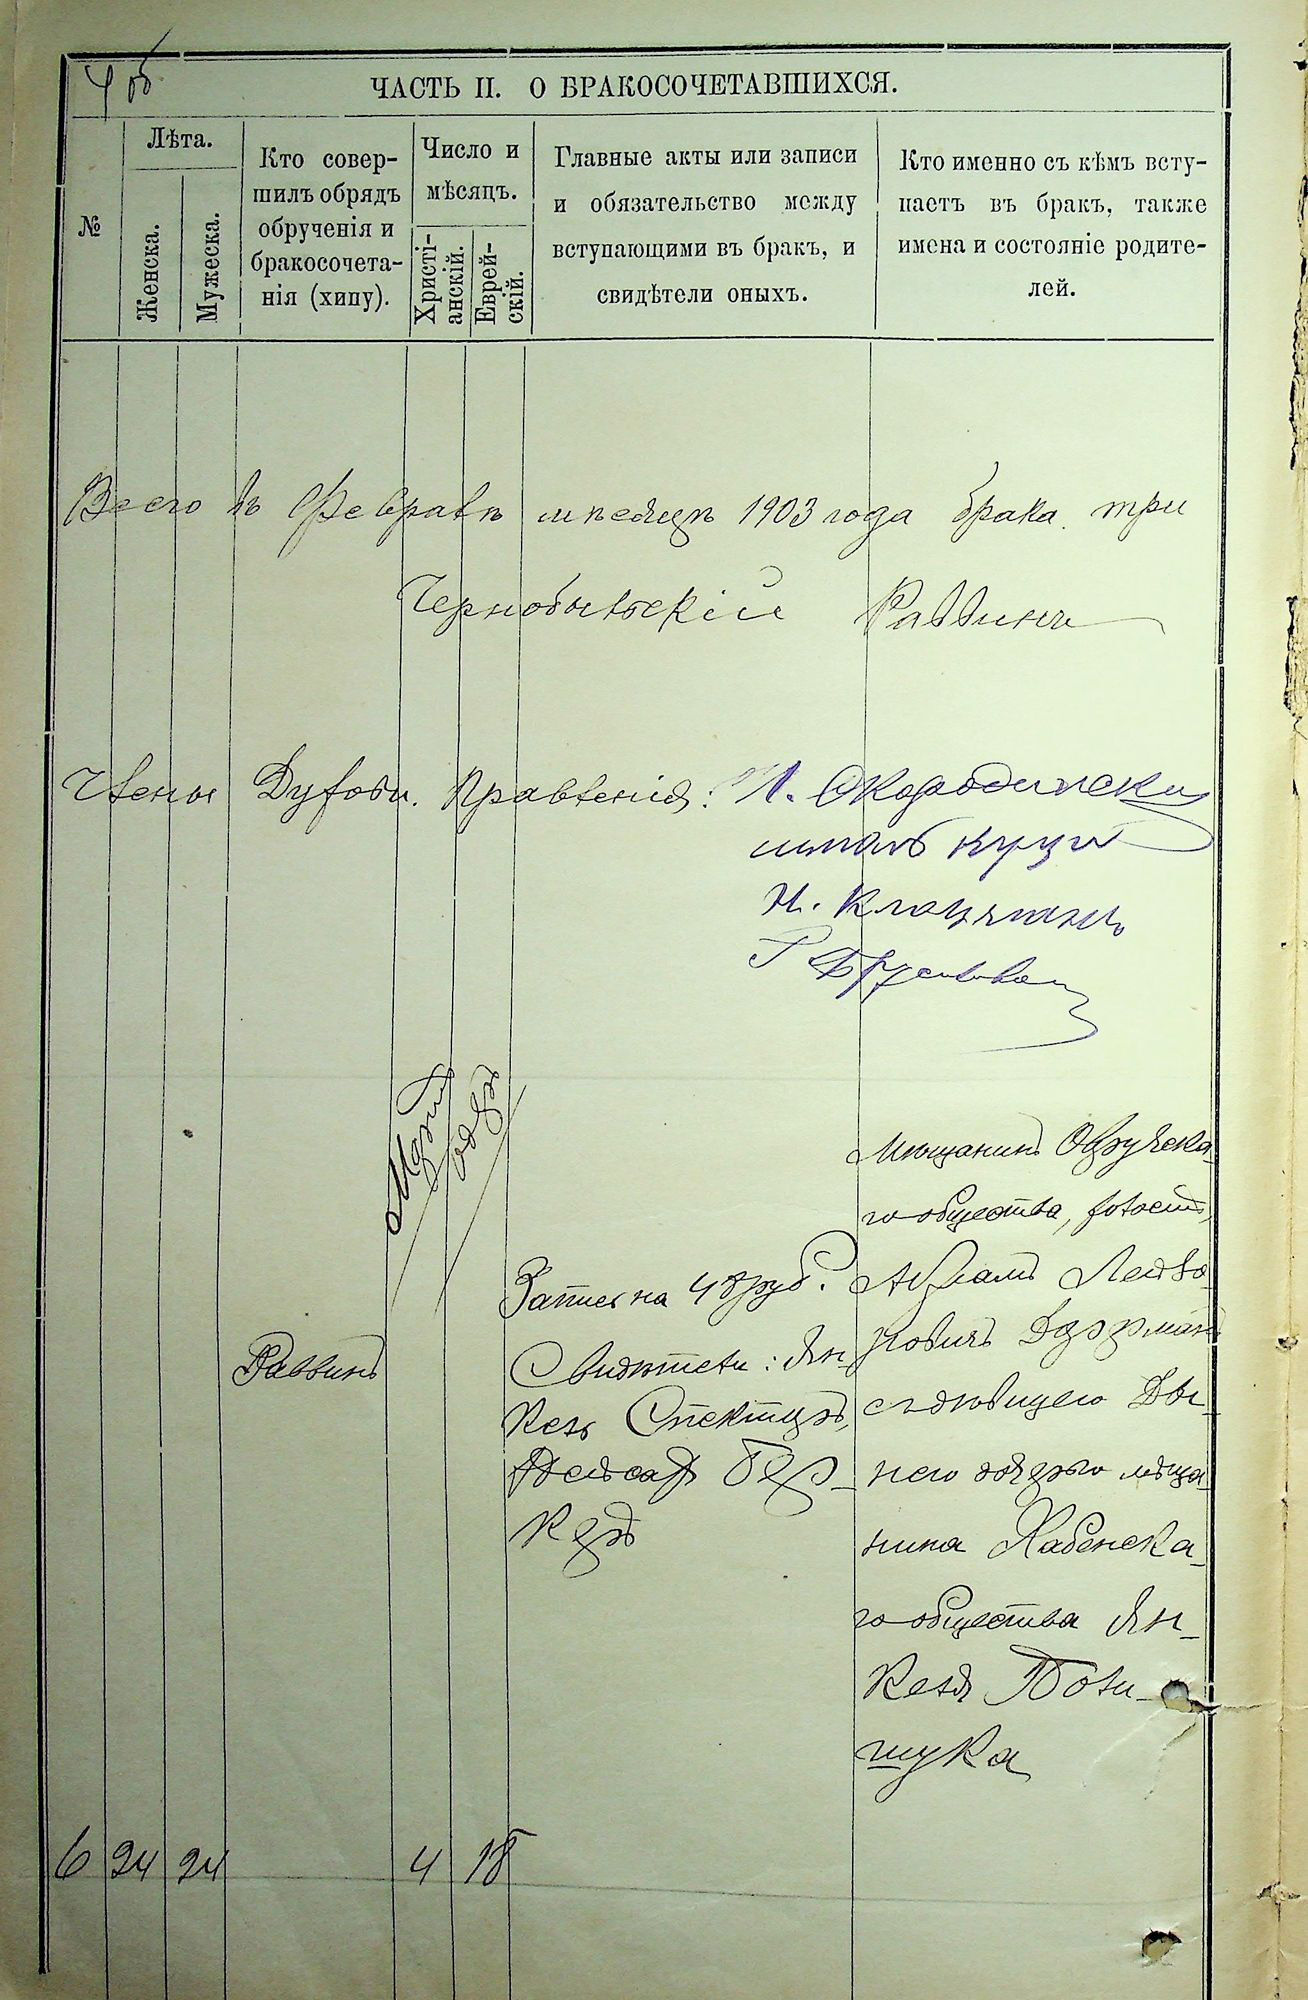 4 об
ЧАСТЬ II. О БРАКОСОЧЕТАВШИХСЯ.
№
Лѣта.
Женска.
Мужеска.
Кто совер-
шилъ обрядъ
обрученія и
бракосочета-
нія (хипу).
Число и
мѣсяцъ.
Христі-
анскій.
Еврей-
скій.
Главные акты или записи
и обязательство между
вступающими въ бракъ, и
свидѣтели оныхъ.
Кто именно съ кѣмъ всту-
паетъ въ бракъ, также
имена и состояніе родите-
лей.
Всего въ Февралѣ мѣсяцѣ 1903 года брака три
Чернобыльскій Раввинъ
Члены Духовн. Правленія:
Мартъ
одеръ
Раввинъ
Запись на 48 руб.
Свидѣтели: Ян-
кель Спекторъ,
Пейсах Бер-
керъ
Мѣщанинъ Овручска-
го общества, холостъ,
Абрамъ Лейзо-
ровичъ
съ дѣвицею
нею дочерью мѣща-
нина Хабенска-
го общества Ян-
келя Поли-
щука
6 24 24 4 18